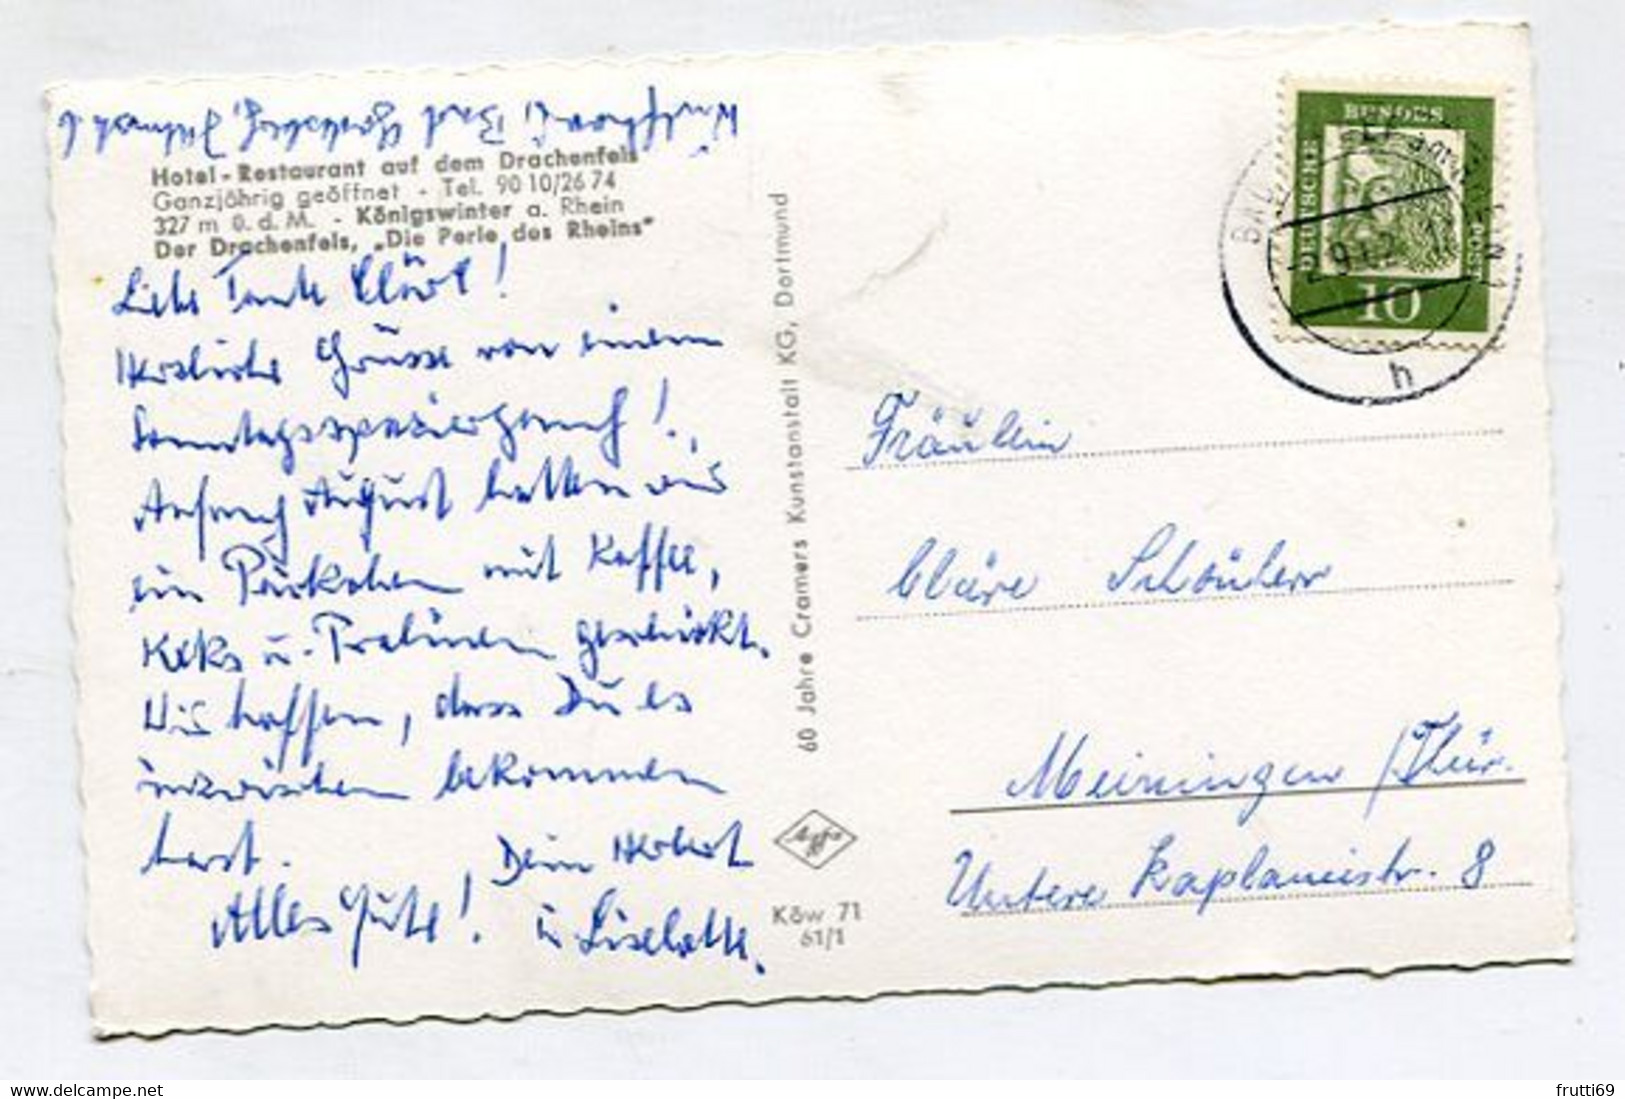 Hotel-Restaurant auf dem Drachenfels
Ganzjährig geöffnet - Tel. 90 10/26 74
327 m ü. d. M. - Königswinter a. Rhein
Der Drachenfels, „Die Perle des Rheins"
Liebe Tante Cläre!
Herzliche Grüsse von einem
Sonntagsspaziergang!
Anfang August hatten wir
ein Päckchen mit Kaffee,
Keks u. Pralinen geschickt.
Wir hoffen, dass Du es
inzwischen bekommen
hast.
Dein Herbert
Alles Gute! u. Liselotte.
Bad Godesberg,
60 Jahre Cramers Kunstanstalt KG, Dortmund
Agfa
Köw 71
61/1
DEUTSCHE
BUNDES
POST
10
h
Fräulein
Cläre
Meiningen / Thür.
Untere Kaplaneistr. 8
frutti69